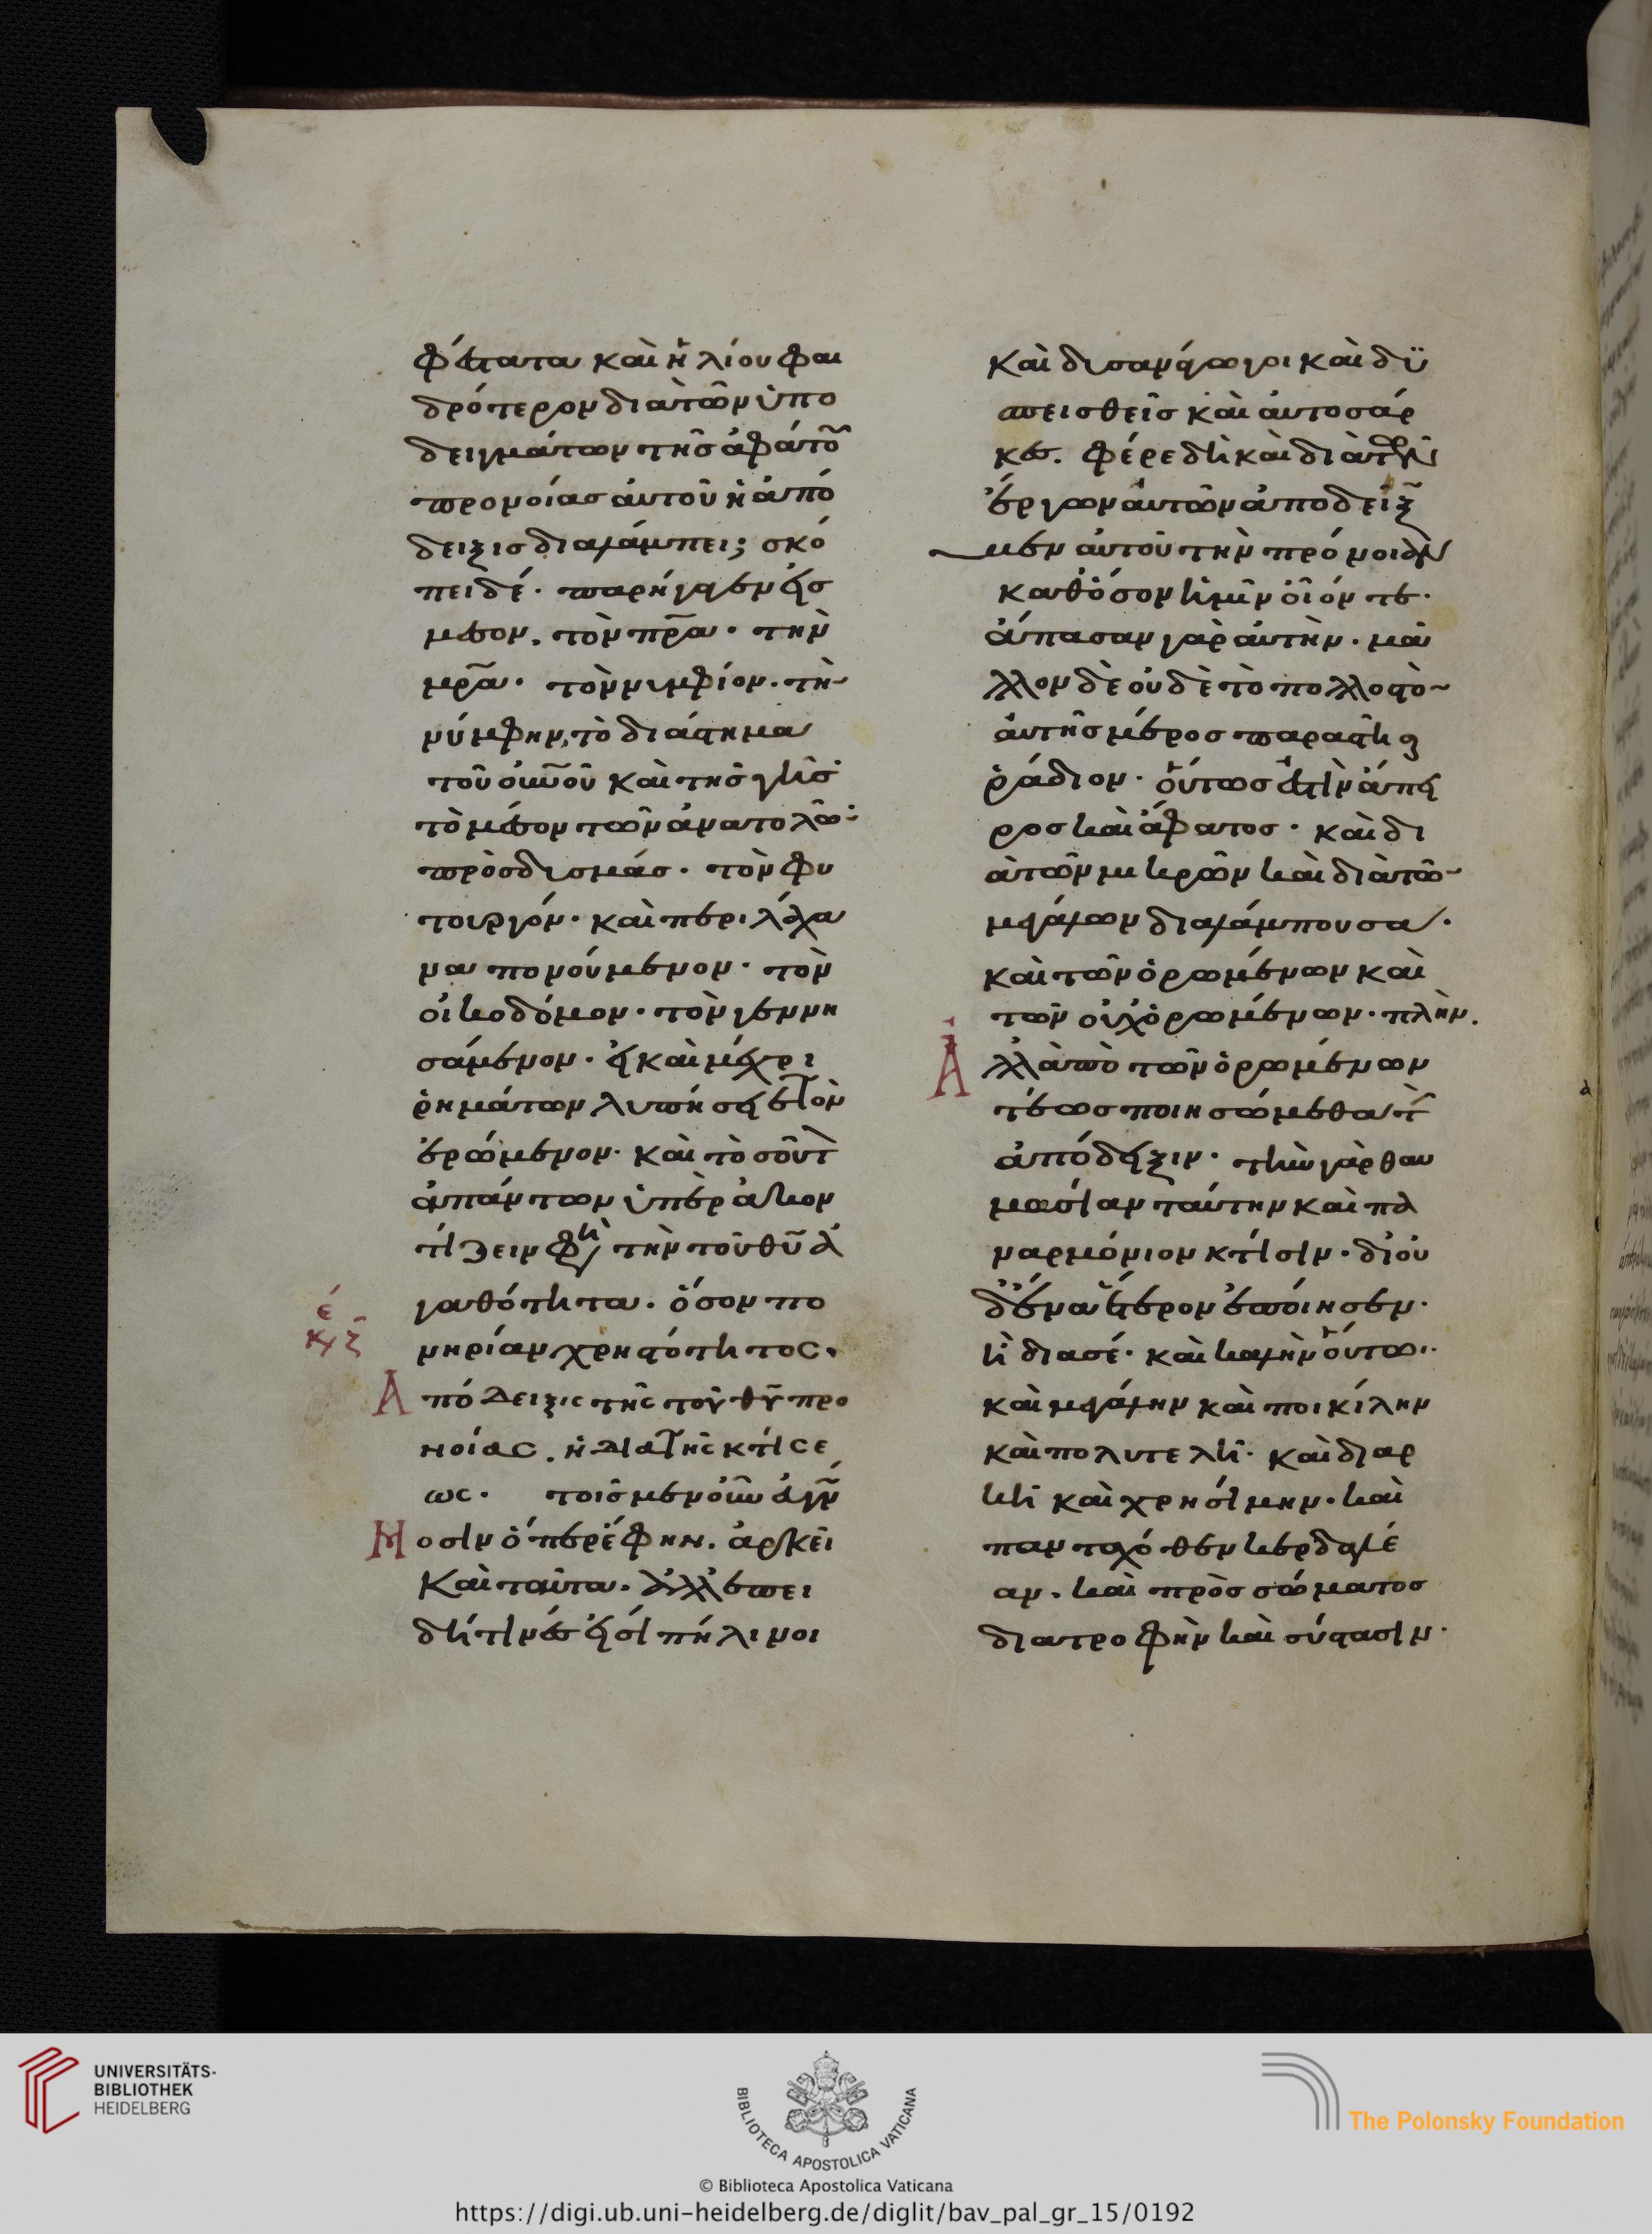 φέστατα καὶ ἡλίου φαι
δρότερον διὰ τῶν ὑπο
δειγμάτων τῆς ἀφάτου
προνοίας αὐτοῦ ἡ ἀπό
δειξις διαλάμπει; σκό
πει δέ. παρήγαγεν εἰς
μέσον. τὸν πρ̅α. τὴν
μρ̅α. τὸν νυμφίον. τὴν
νύμφην, τὸ διάστημα
τοῦ οὐνοῦ καὶ τῆς γῆς
τὸ μέσον τῶν ἀνατολῶν
πρὸς δυσμάς. τὸν φυ
τουργόν. καὶ περὶ λάχα
να πονούμενον. τὸν
οἰκοδόμον. τὸν γεννη
σάμενον. εἰ καὶ μέχρι
ῥημάτων λυπήσει τὸν
ἐρώμενον. καὶ τοσοῦτ
ἁπάντων ὑπεράνω
τίθειν φησὶ τὴν τοῦ θυ̅ ἀ
γαθότητα. ὅσον πο
νηρίαν χρηστότητος.
Ἀπόδειξις τῆς τοῦ θυ̅ προ
νοίας. ἡ διὰ τῆς κτίσε
ως. τοῖς μὲν οὖν εὐγνώ
Μοσιν ὅπερ ἔφην. ἀρκεῖ
Καὶ ταῦτα. ἀλλ' ἐπει
δή τινές εἰσι πήλινοι
καὶ δυσανάγωγοι καὶ δυ
σπειθεῖς καὶ αὐτόσαρ
κες. φέρε δὴ καὶ διὰ τῶν
ἔργων αὐτῶν ἀποδείξω
μεν αὐτοῦ τὴν πρόνοιαν
καθόσον ἡμῖν οἷόν τε.
ἅπασαν γὰρ αὐτὴν. μᾶ
λλον δὲ οὐδὲ τὸ πολλοστὸν
αὐτῆς μέρος παραστῆσαι
ῥάδιον. οὕτως ἐστὶν ἄπει
ρος καὶ ἄφατος. καὶ δι
ὰ τῶν μικρῶν καὶ διὰ τῶν
μεγάλων διαλάμπουσα.
καὶ τῶν ὁρωμένων καὶ
τῶν οὐχ ὁρωμένων. πλὴν.
Ἀλλὰ ἀπὸ τῶν ὁρωμένων
τέως ποιησώμεθα τὴν
ἀπόδειξιν. τὴν γὰρ θαυ
μασίαν ταύτην καὶ πα
ναρμόνιον κτίσιν. δι' οὐ
δὲν ἕτερον ἐποίησεν.
ἢ διὰ σέ. καὶ καλὴν οὕτω.
καὶ μεγάλην καὶ ποικίλην
καὶ πολυτελῆ. καὶ διαρ
κῆ καὶ χρησίμην. καὶ
πανταχόθεν κερδαλέ
αν. καὶ πρὸς σώματος
διατροφὴν καὶ σύστασιν.
UNIVERSITÄTS-
BIBLIOTHEK
HEIDELBERG
BIBLIOTECA APOSTOLICA VATICANA
The Polonsky Foundation
© Biblioteca Apostolica Vaticana
https://digi.ub.uni-heidelberg.de/diglit/bav_pal_gr_15/0192